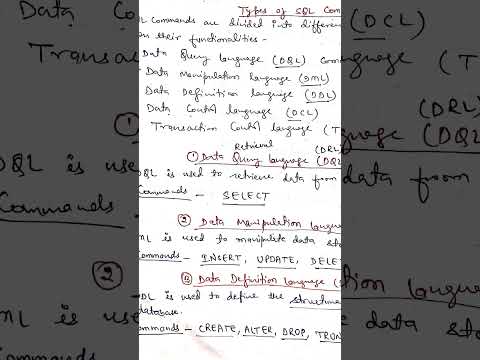 Types of SQL Com
L Commands are divided into differe
on their functionalities -
Data Query language (DQL)
Data manipulation language (DML)
Data Definition language (DDL)
Data Control language (DCL)
Transaction Control language (T
Retrieval (DRL)
① Data Query language (DQL
DQL is used to retrieve data from
Commands - SELECT
② Data Manipulation langua
ML is used to manipulate data sto
ommands - INSERT, UPDATE, DELE
③ Data Definition language (
DL is used to define the structure
database.
ommands - CREATE, ALTER, DROP, TRUN